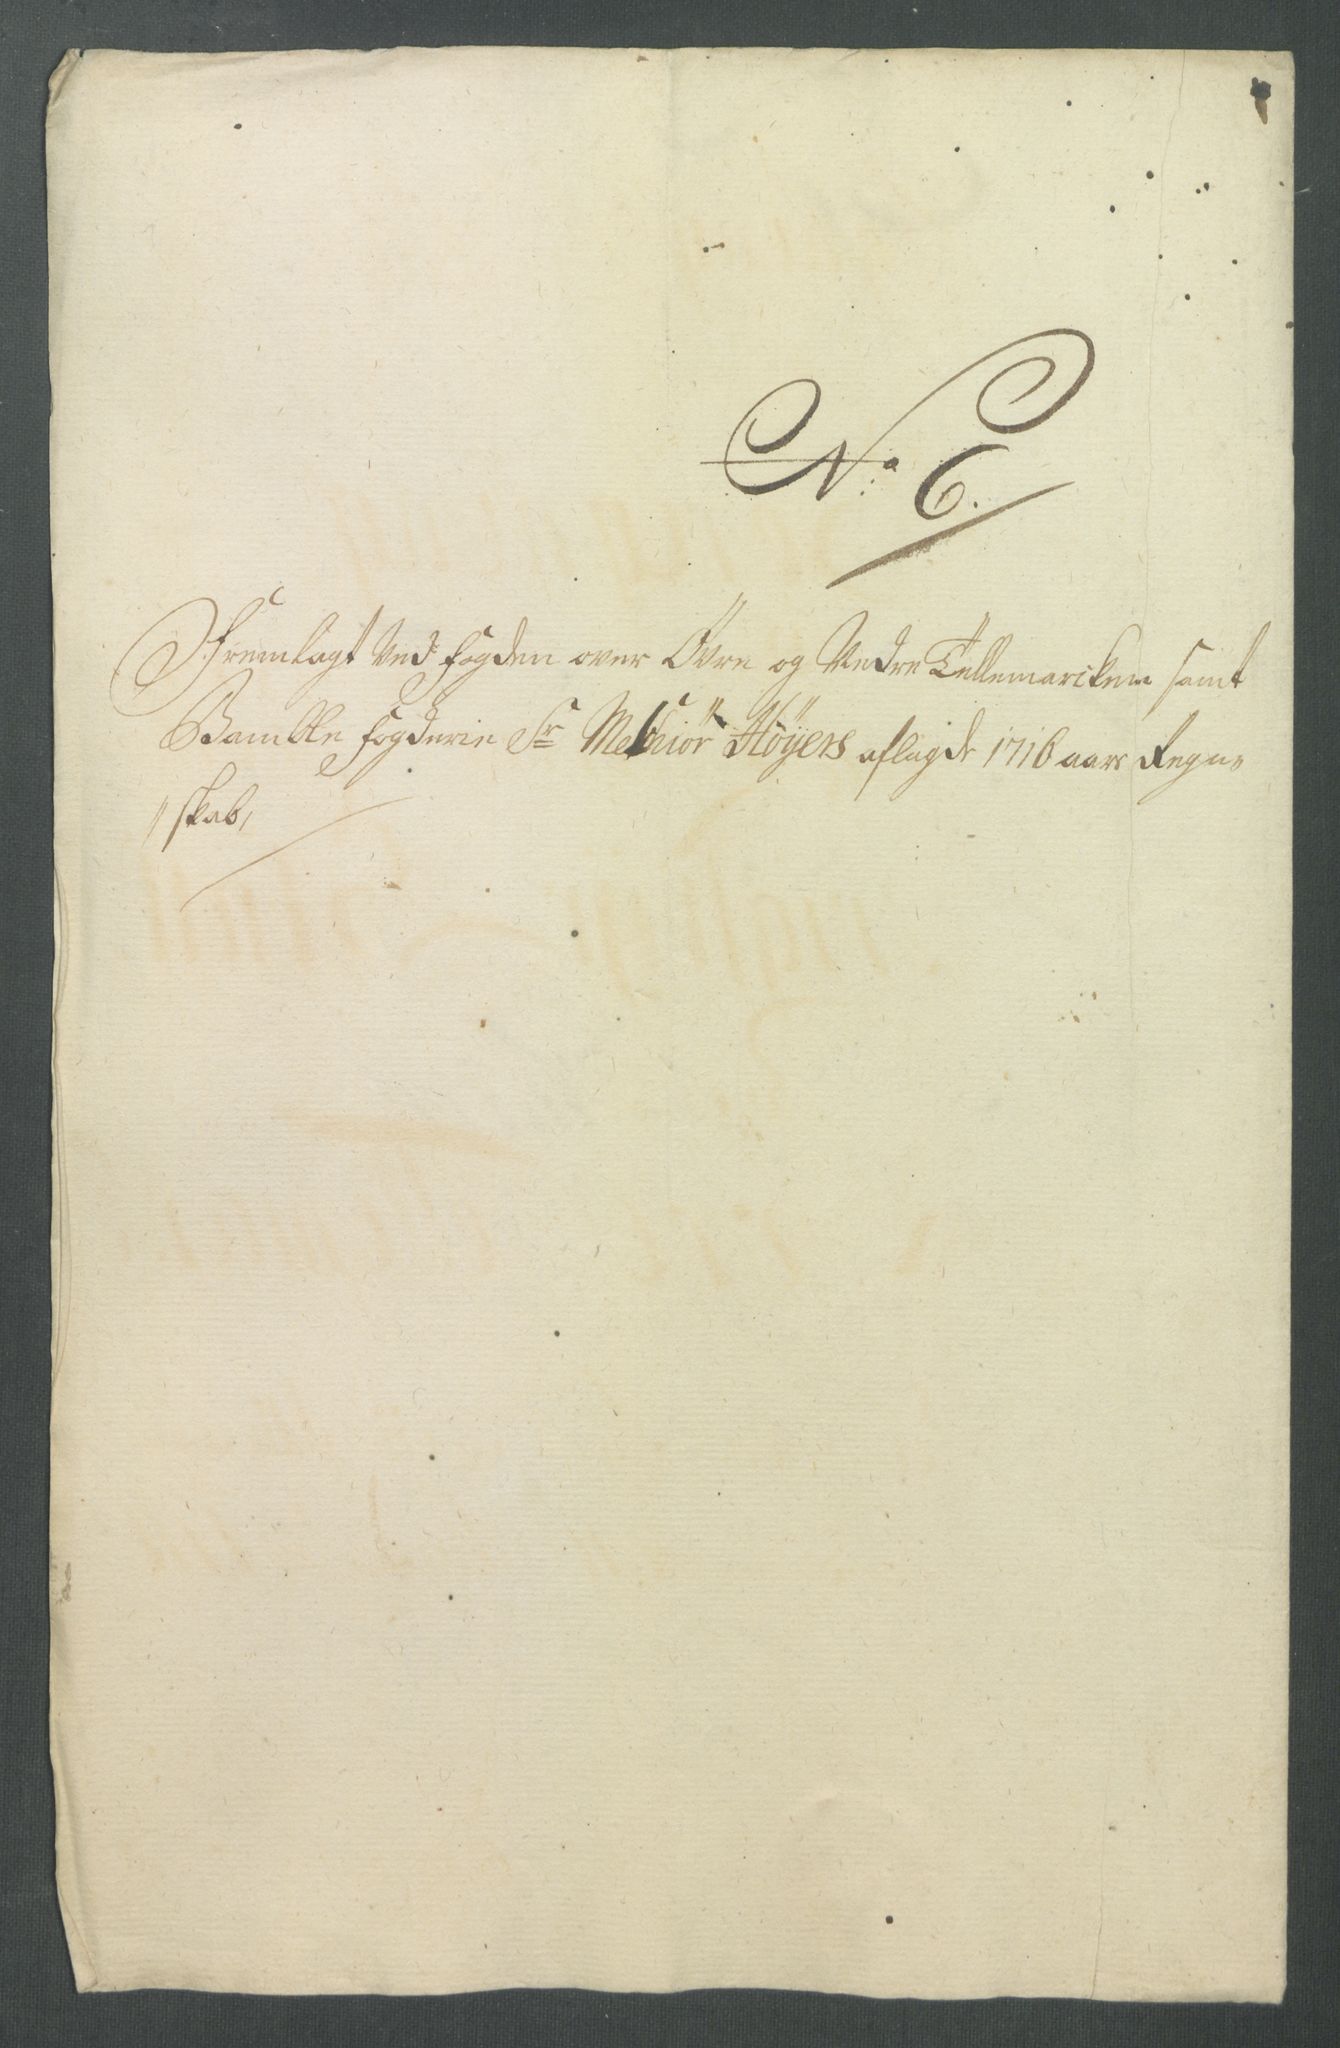 No: 6.
Fremlagt Ved fogden over Övre og Nedre Tellemarcken samt
Bamble fogderie Sr Melchiör Höÿers aflagde 1716 aars Regn=
"skab,